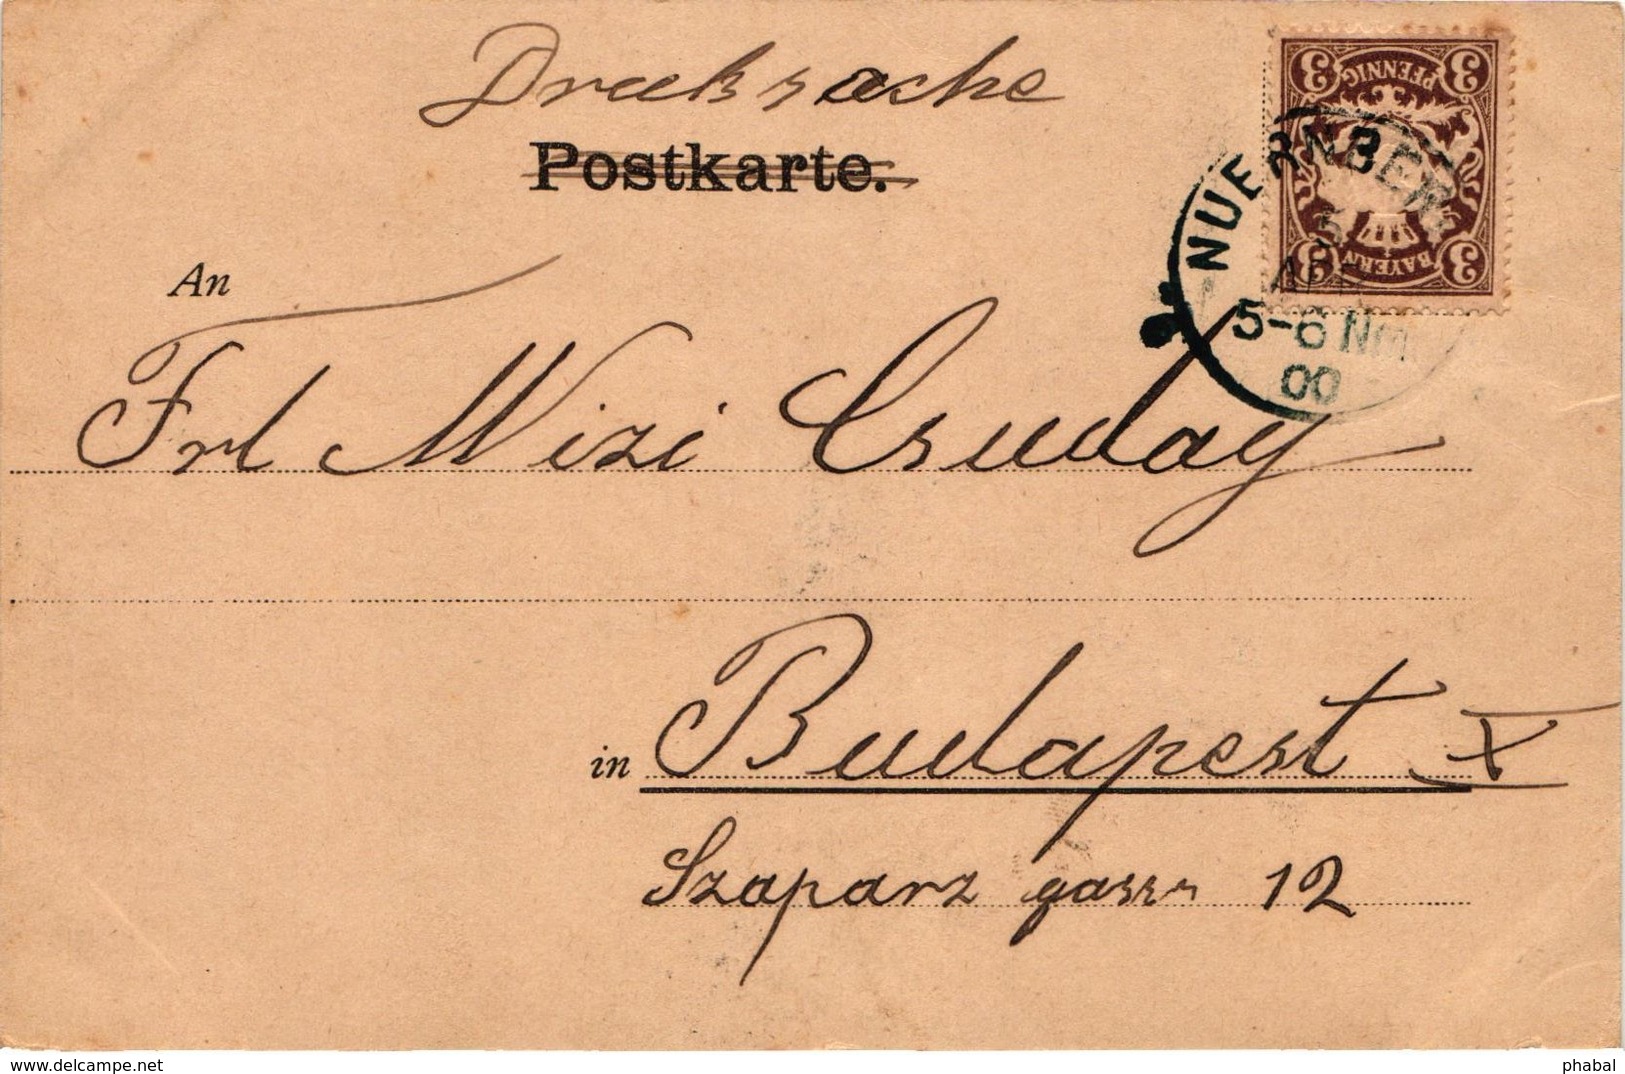 Drucksache
Postkarte.
3 PFENNIG 3
3 BAYERN 3
NUERNBERG
5
APR
5-6 Nm
00
An
Frl Mizi Csuday
in Budapest X
Szaparz gasse 12
delcampe.net
phabal